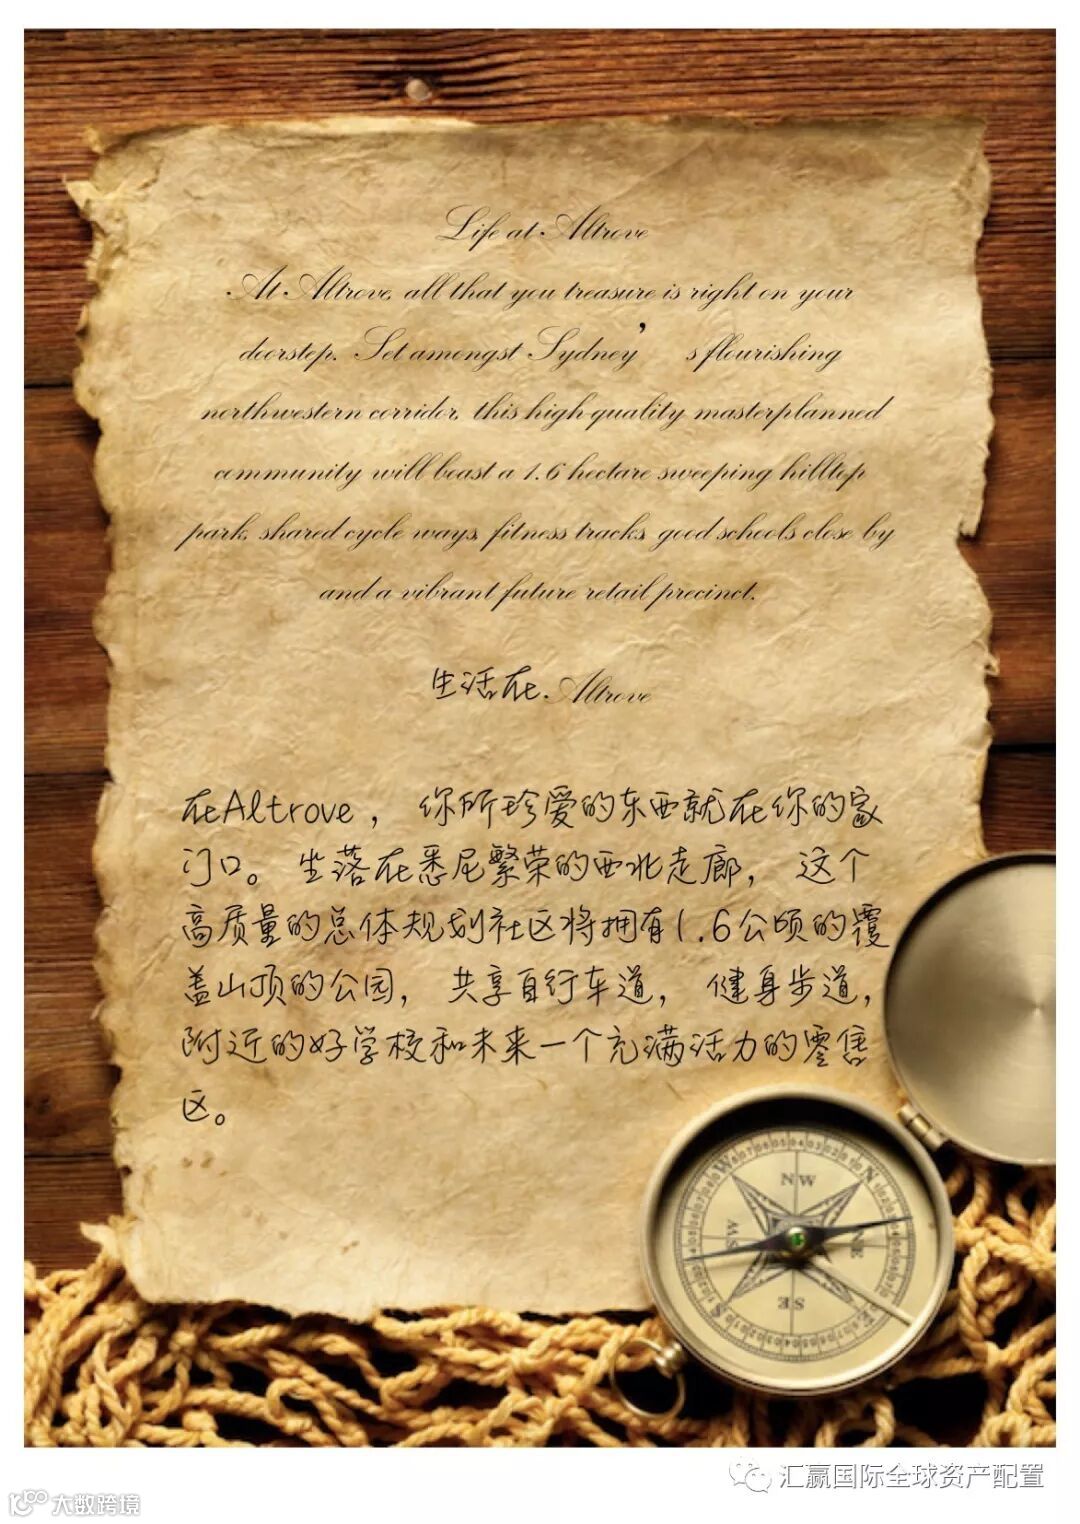 Life at Altrove
At Altrove, all that you treasure is right on your
doorstep. Set amongst Sydney’ s flourishing
northwestern corridor, this high-quality masterplanned
community will boast a 1.6 hectare sweeping hilltop
park, shared cycle ways, fitness tracks, good schools close by
and a vibrant future retail precinct.
生活在 Altrove
在Altrove， 你所珍爱的东西就在你的家
门口。 坐落在悉尼繁荣的西北走廊， 这个
高质量的总体规划社区将拥有1.6公顷的覆
盖山顶的公园， 共享自行车道， 健身步道，
附近的好学校和未来一个充满活力的零售
区。
NW
N
NE
E
SE
S
SW
W
汇赢国际全球资产配置
大数跨境